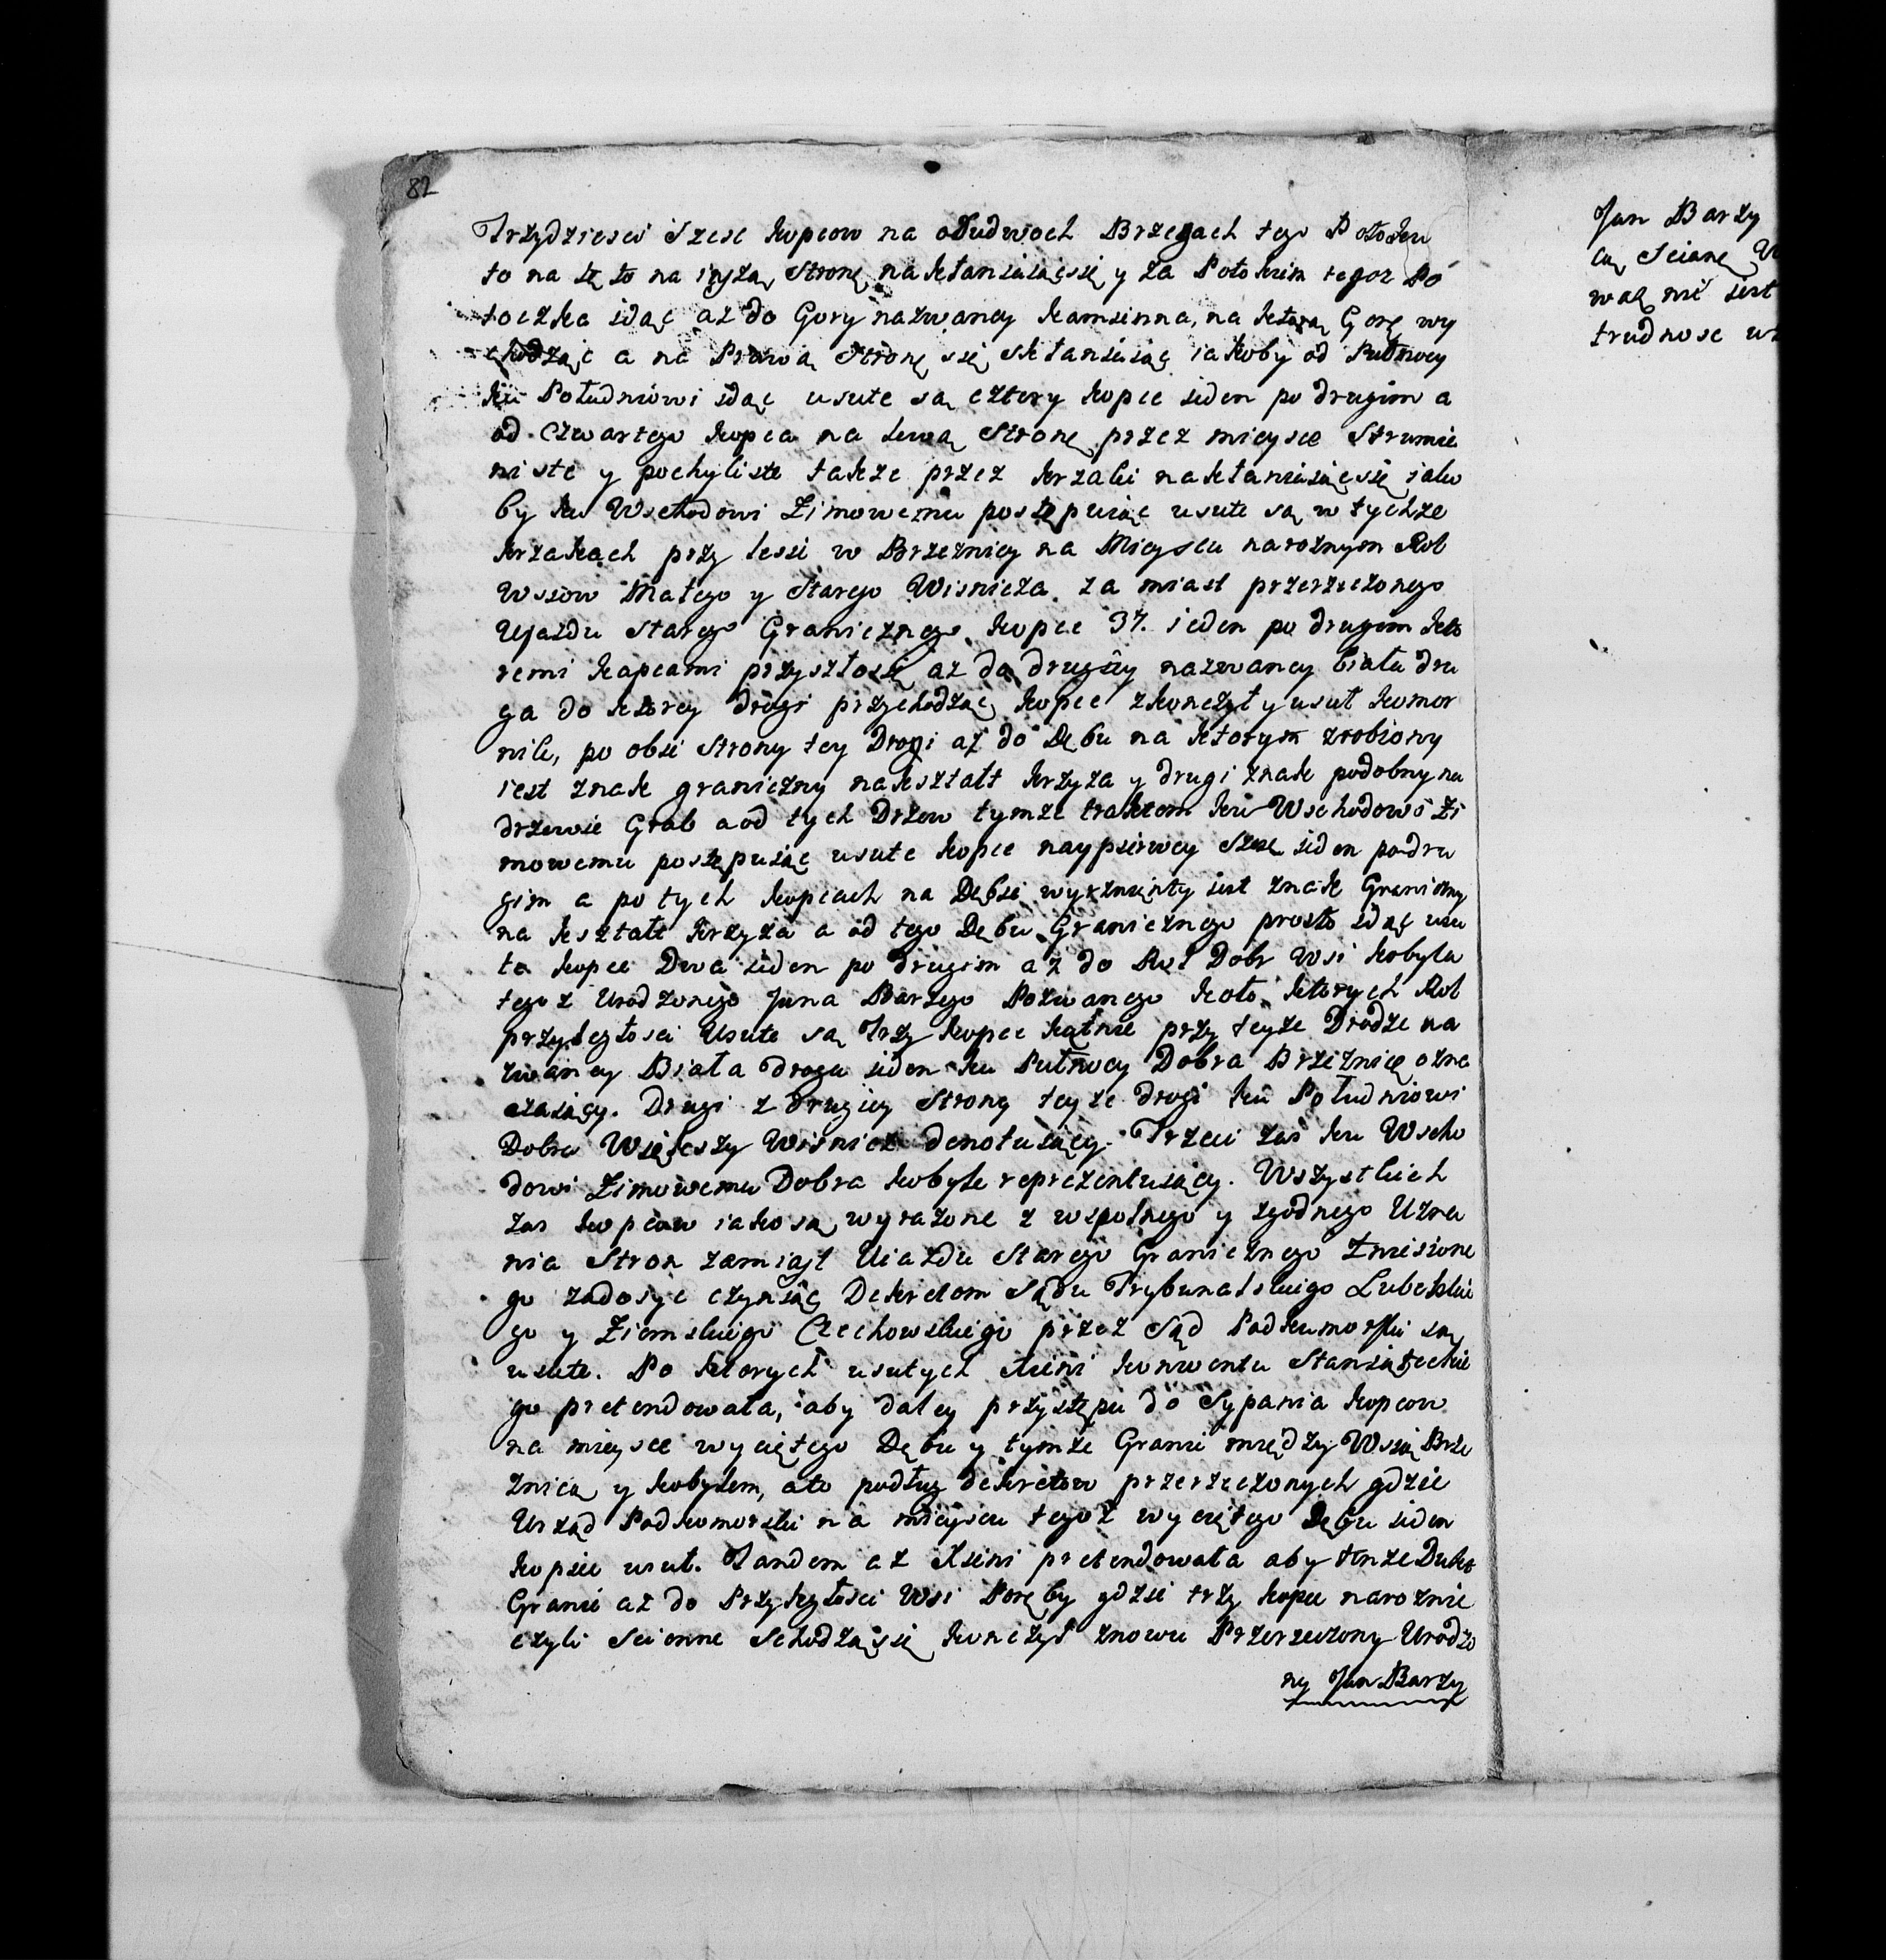 82
Trzydziesci Szesc kopcow na obudwoch Brzegach tego Potoku
to na tę to na inszą Stronę nakłaniaiącsię y za Potokiem tegoz Po
toczka idąc az do Gory nazwaney Kamienna, na ktorą Gorę wy
chodząc a na Prawą Stronę się skłaniaiąc iakoby od Pułnocy
ku Południowi idąc usute są cztery kopce ieden po drugim a
od czwartego kopca na lewą Stronę przez mieysce Strumie
niste y pochyliste takze przez krzaki nakłaniaiącsię iako
by ku Wschodowi Zimowemu postępuiąc usute są w tychze
krzakach przy lesie w Brzeznicy na Mieyscu naroznym Rol
Wsiow Małego y Starego Wisnicza za miast przerzeczonego
Ujazdu Starego Granicznego kopce 37. ieden po drugim kto
remi kopcami przyszłosię az do drugiey nazwaney biała dro
ga do ktorey drogi przychodząc kopce zkonczył y usuł komor
nik, po obie Strony tey Drogi az do Dębu na ktorym zrobiony
iest znak graniczny nakształt krzyza y drugi znak podobny na
drzewie Grab a od tych Drzew tymze traktem ku Wschodowi Zi
mowemu postępuiąc usute kopce naypierwey Szesc ieden po dru
gim a po tych kopcach na Dębie wyrznięty iest znak Graniczny
na kształt krzyza a od tego Dębu Granicznego prosto idąc usu
te kopce Dwa ieden po drugim az do Rol Dobr Wsi Kobyla
tegoz Urodzonego Jana Barzego Pozwanego koło ktorych Rol
przyległosci Usute są Trzy kopce kątne przy teyze Drodze na
zwaney Biała droga ieden ku Pułnocy Dobra Brzeznicę ozna
czaiący. Drugi z drugiey Strony teyze drogi ku Południowi
Dobra Większy Wisnicz denotuiący. Trzeci zas ku Wscho
dowi Zimowemu Dobra Kobyle reprezentuiący. Wszystkich
zas kopcow iako są wyrazone z wspolnego y zgodnego Uzna
nia Stron zamiast Uiazdu Starego Granicznego Zniesione
go zadosyc czyniąc Dekretom Sądu Trybunalskiego Lubelskie
go y Ziemskiego Czechowskiego przez Sąd Podkomorski są
usute. Po ktorych usutych Xieni konwentu Staniąteckie
go pretendowała, aby daley przystępu do Sypania kopcow
na mieysce wyciętego Dębu y tymze Granic między Wsią Brze
znicą y Kobylem, ato podług dekretow przerzeczonych gdzie
Urząd Podkomorski na mieyscu tegoz wyciętego Dębu ieden
kopiec usuł. Tandem az Xieni pretendowała aby tenze Dukt
Granic az do Przyległosci Wsi Poręby gdzie trzy kopce narozne
czyli Scienne Schodząsię konczył znowu Przerzeczony Urodzo
ny Jan Barzy
Jan Barzy
cą Scianę
wać nie iest
trudnosc